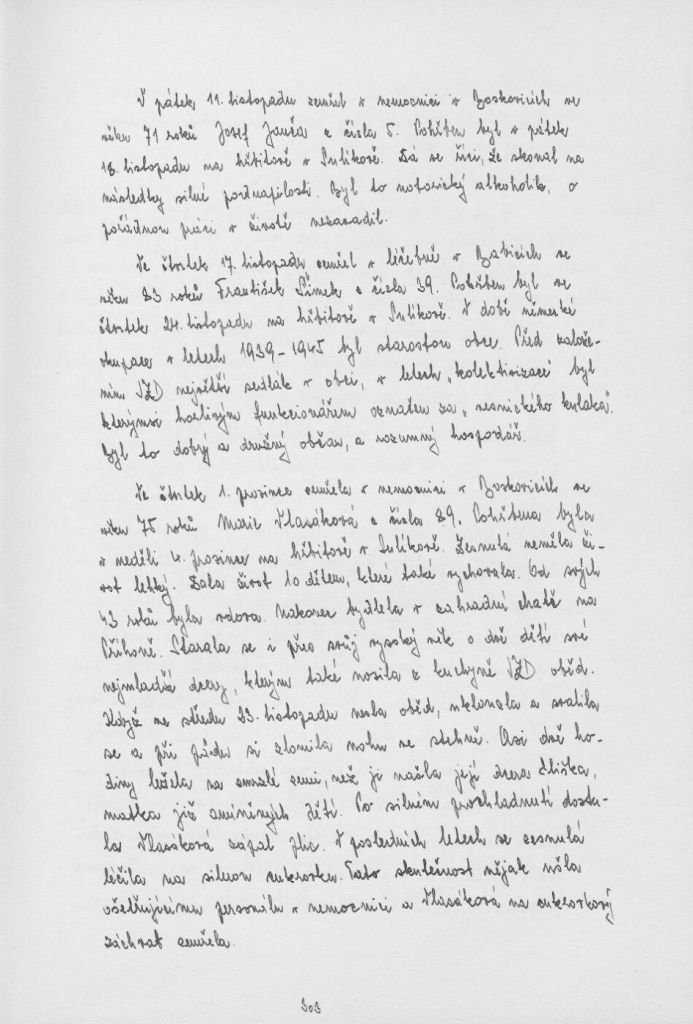 V pátek 11. listopadu zemřel v nemocnici v Boskovicích ve
věku 71 roků Josef Janča z čísla 5. Pohřben byl v pátek
18. listopadu na hřbitově v Sulíkově. Dá se říci, že skonal na
následky silné podnapilosti. Byl to notorický alkoholik, o
pořádnou práci v životě nezavadil.
Ve čtvrtek 17. listopadu zemřel v léčebně v Babicích ve
věku 83 roků František Šimek z čísla 39. Pohřben byl ve
čtvrtek 24. listopadu na hřbitově v Sulíkově. V době německé
okupace v letech 1939-1945 byl starostou obce. Před založe-
ním JZD největší sedlák v obci, v letech „kolektivizace" byl
kterýmsi horlivým funkcionářem označen za „vesnického kulaka".
Byl to dobrý a družný občan, a rozumný hospodář.
Ve čtvrtek 1. prosince zemřela v nemocnici v Boskovicích ve
věku 75 roků Marie Vlasáková z čísla 89. Pohřbena byla
v neděli 4. prosince na hřbitově v Sulíkově. Zesnulá neměla ži-
vot lehký. Dala život 10 dětem, které také vychovala. Od svých
43 roků byla vdova. Nakonec bydlela v zahradní chatě na
Příhoně. Starala se i přes svůj vysoký věk o dvě děti své
nejmladší dcery, kterým také nosila z kuchyně JZD oběd.
Když ve středu 23. listopadu nesla oběd, uklouzla a svalila
se a při pádu si zlomila nohu ve stehně. Asi dvě ho-
diny ležela na zmrzlé zemi, než ji našla její dcera Eliška,
matka již zmíněných dětí. Po silném prochladnutí dosta-
la Vlasáková zápal plic. V posledních letech se zesnulá
léčila na silnou cukrovku. Tato skutečnost nějak ušla
ošetřujícímu personálu v nemocnici a Vlasáková na cukrovkový
záchvat zemřela.
303